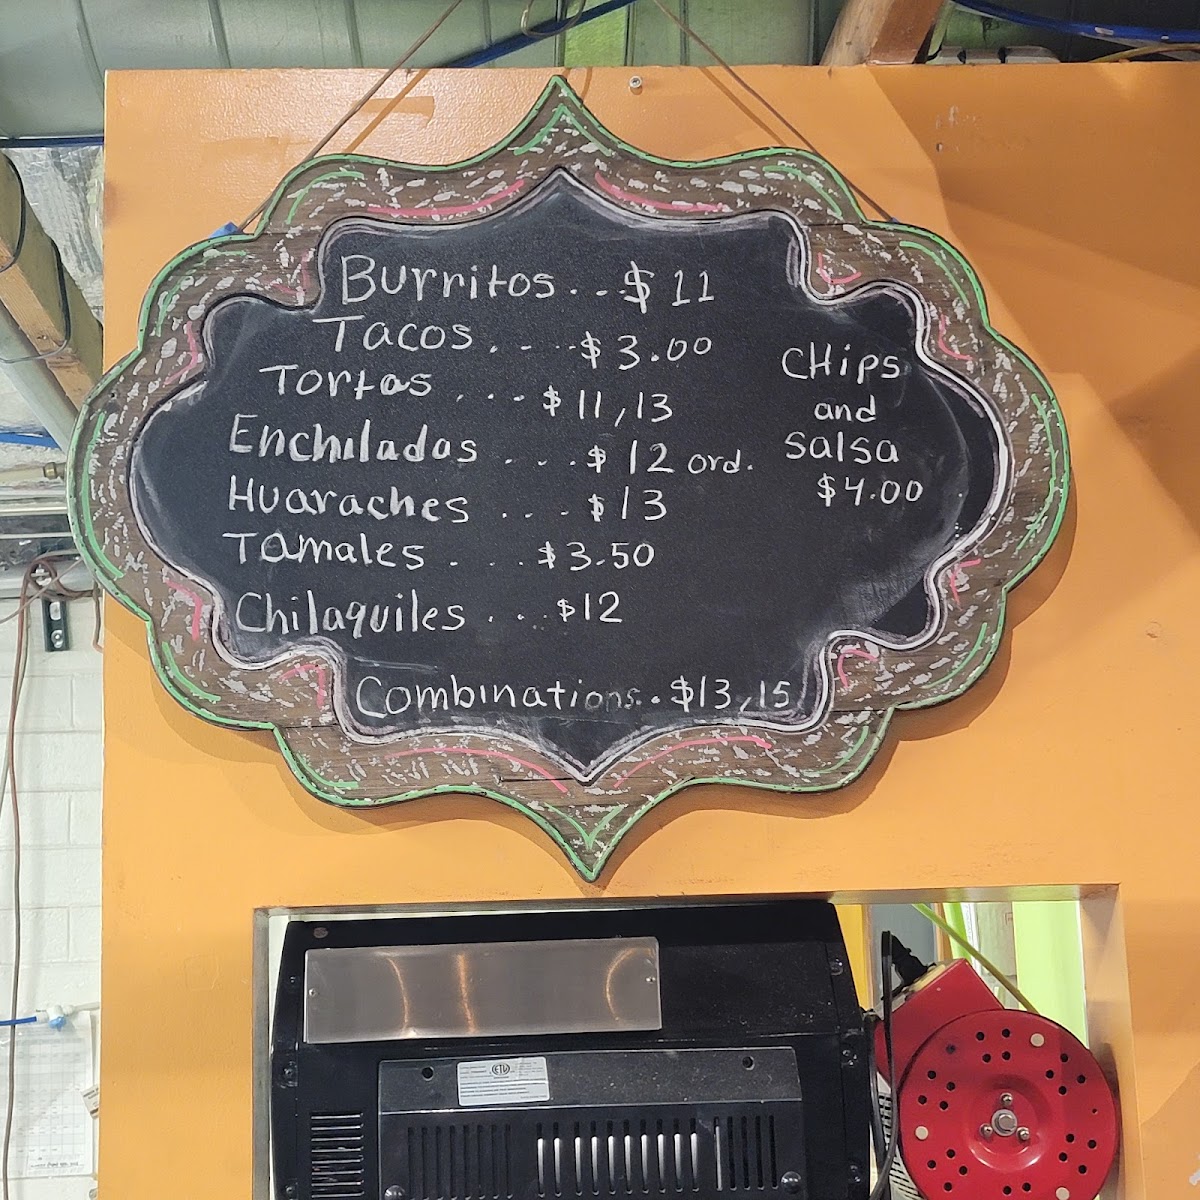 Burritos...$11
Tacos....$3.00
Tortas....$11,13
Enchiladas....$12 ord.
Huaraches....$13
Tamales....$3.50
Chilaquiles...$12
Combinations..$13,15
CHips
and
Salsa
$4.00
ETL